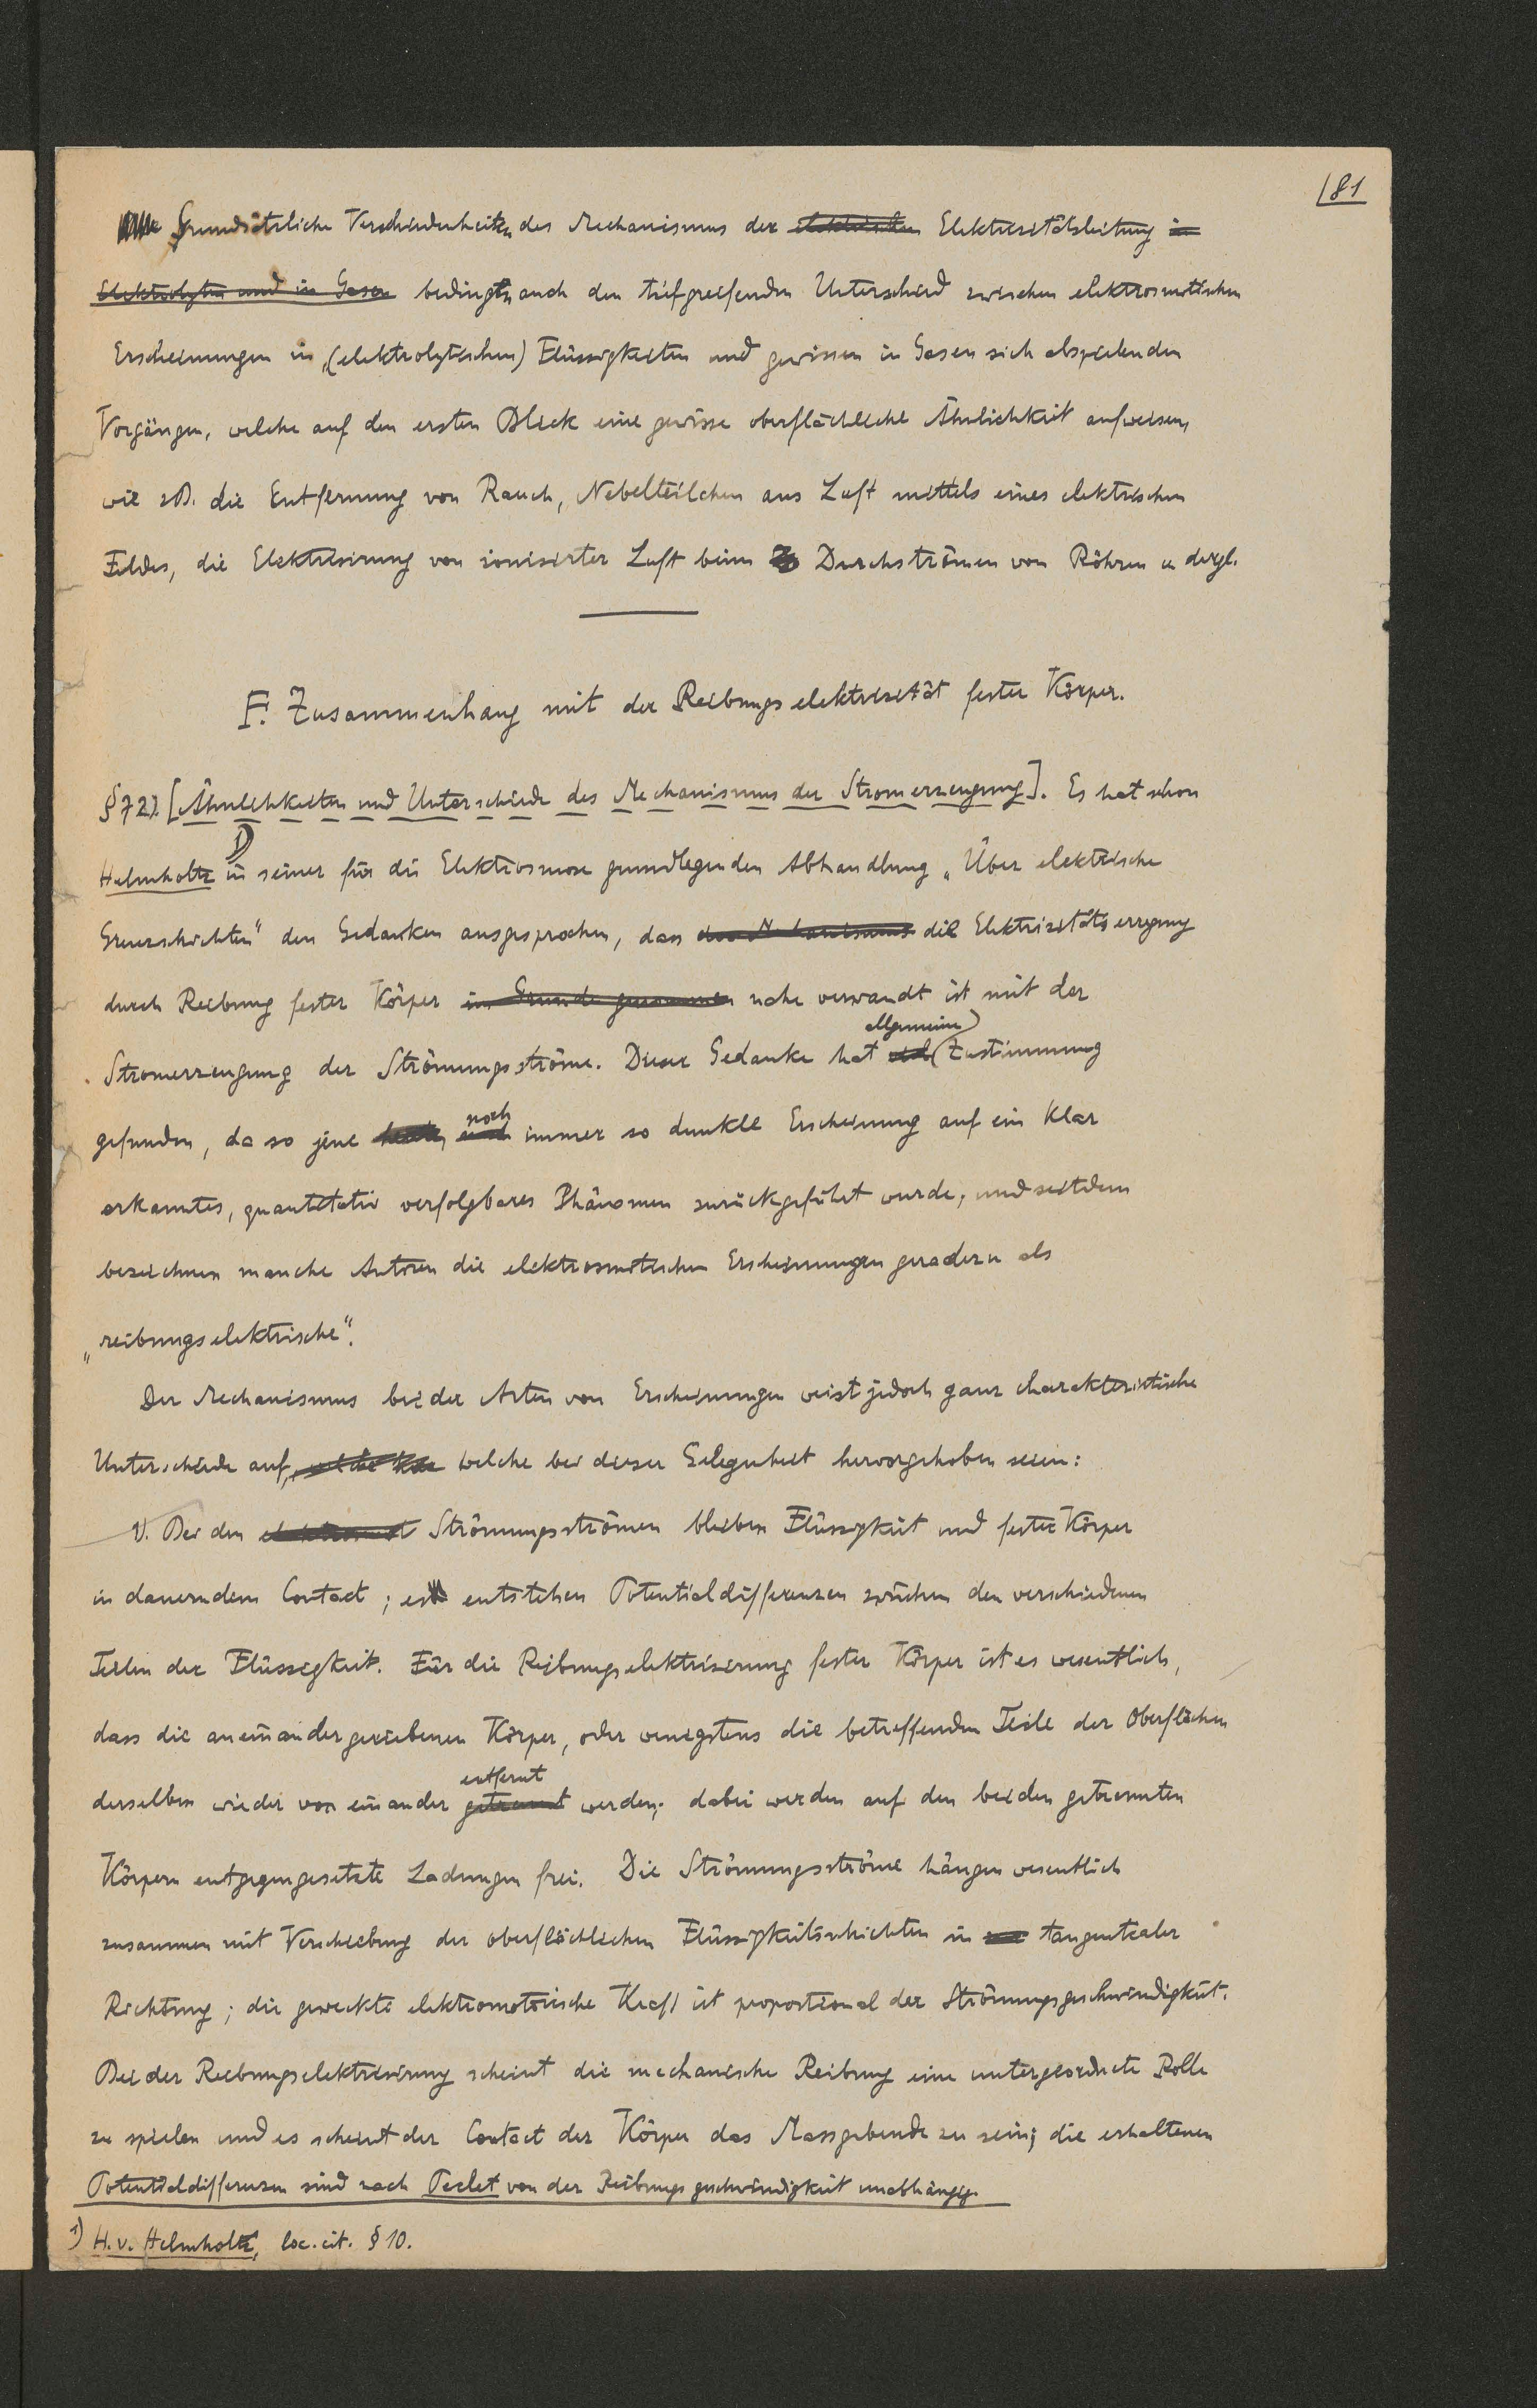 81
Grundsätzliche Verschiedenheiten des Mechanismus der elektrischen Elektrizitätsleitung in
Elektrolyten und in Gasen bedingen auch den tiefgreifenden Unterschied zwischen elektrosmotischen
Erscheinungen in (elektrolytischen) Flüssigkeiten und gewissen in Gasen sich abspielenden
Vorgängen, welche auf den ersten Blick eine gewisse oberflächliche Ähnlichkeit aufweisen,
wie zB. die Entfernung von Rauch, Nebelteilchen aus Luft mittels eines elektrischen
Feldes, die Elektrisirung von ionisirter Luft beim Durchströmen von Röhren u dergl.
F. Zusammenhang mit der Reibungselektrizität fester Körper.
§72). [Ähnlichkeiten und Unterschiede des Mechanismus der Stromerzeugung]. Es hat schon
Helmholtz 1) in seiner für die Elektrosmose grundlegenden Abhandlung „Über elektrische
Grenzschichten" den Gedanken ausgesprochen, dass der Mechanismus die Elektrizitätserregung
durch Reibung fester Körper im Grunde genommen nahe verwandt ist mit der
Stromerzeugung der Strömungsströme. Dieser Gedanke hat viel allgemeine Zustimmung
gefunden, da so jene noch immer so dunkle Erscheinung auf ein klar
erkanntes, quantitativ verfolgbares Phänomen zurückgeführt wurde, und seitdem
bezeichnen manche Autoren die elektrosmotischen Erscheinungen geradezu als
„reibungselektrische".
Der Mechanismus beider Arten von Erscheinungen weist jedoch ganz charakteristische
Unterschiede auf, welche welche bei dieser Gelegenheit hervorgehoben seien:
1). Bei den elektrosmot Strömungsströmen bleiben Flüssigkeit und fester Körper
in dauerndem Contact; es entstehen Potentialdifferenzen zwischen den verschiedenen
Teilen der Flüssigkeit. Für die Reibungselektrisirung fester Körper ist es wesentlich,
dass die aneinander geriebenen Körper, oder wenigstens die betreffenden Teile der Oberflächen
derselben wieder von einander getrennt entfernt werden; dabei werden auf den beiden getrennten
Körpern entgegengesetzte Ladungen frei. Die Strömungsströme hängen wesentlich
zusammen mit Verschiebung der oberflächlichen Flüssigkeitsschichten in tangentialer
Richtung; die geweckte elektromotorische Kraft ist proportional der Strömungsgeschwindigkeit.
Bei der Reibungselektrisirung scheint die mechanische Reibung eine untergeordnete Rolle
zu spielen und es scheint der Contact der Körper das Massgebende zu sein; die erhaltenen
Potentialdifferenzen sind nach Peclet von der Reibungsgeschwindigkeit unabhängig.
1) H. v. Helmholtz, loc. cit. § 10.